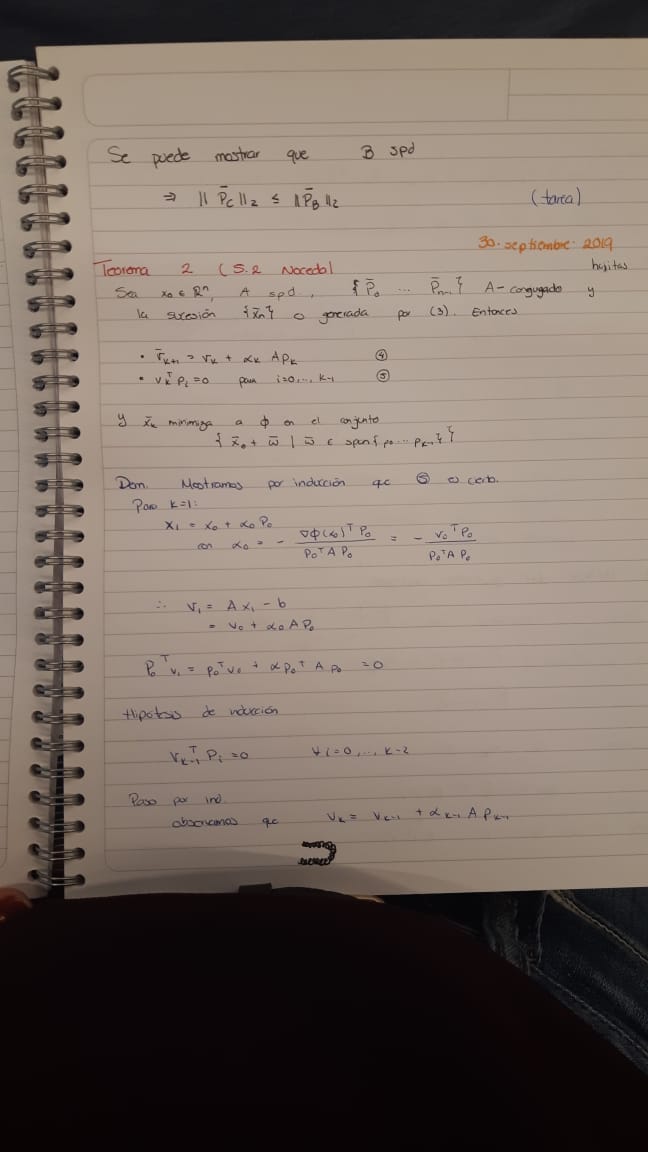 Se puede mostrar que B spd
⇒ || P̄c ||₂ ≤ || P̄B ||₂ (tarea)
30. septiembre. 2019
Teorema 2 (5.2 Nocedal hojitas
Sea x₀ ∈ ℝⁿ, A spd, { P̄₀ ... P̄ₙ₋₁ } A-conjugado y
la sucesión {x̄ₙ} es generada por (3). Entonces
• r̄ₖ₊₁ = rₖ + αₖ A pₖ ④
• rₖᵀ pᵢ = 0 para i=0,... k-1 ⑤
y x̄ₖ minimiza a φ en el conjunto
{ x̄₀ + w̄ | w̄ ∈ span{ p₀ ... pₖ₋₁ } }
Dem. Mostramos por inducción que ⑤ es cierto.
Para k=1:
x₁ = x₀ + α₀ P₀
con α₀ = - ∇φ(x₀)ᵀ P₀ / P₀ᵀ A P₀ = - r₀ᵀ P₀ / P₀ᵀ A P₀
∴ r₁ = A x₁ - b
= r₀ + α₀ A P₀
P₀ᵀ r₁ = p₀ᵀ r₀ + α p₀ᵀ A p₀ = 0
Hipótesis de inducción
rₖ₋₁ᵀ Pᵢ = 0 ∀ i=0,..., k-2
Paso por ind.
observamos que rₖ = rₖ₋₁ + αₖ₋₁ A pₖ₋₁